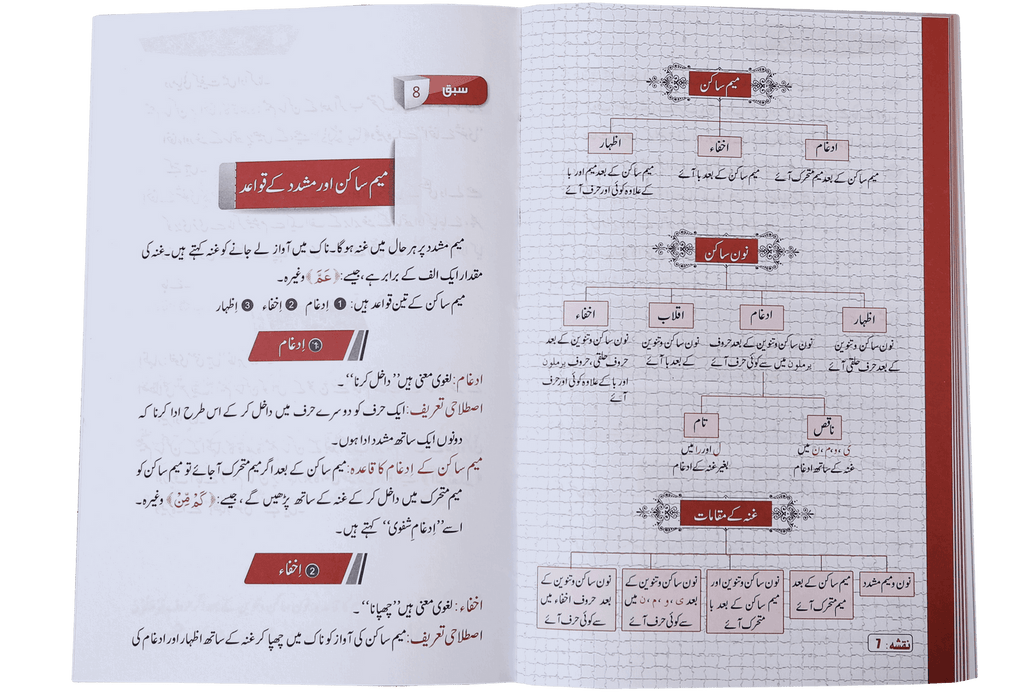 میم ساکن
ادغام
اخفاء
اظہار
میم ساکن کے بعد میم متحرک آئے
میم ساکن کے بعد با آئے
میم ساکن کے بعد میم اور با
کے علاوہ کوئی اور حرف آئے
نون ساکن
اظہار
ادغام
اقلاب
اخفاء
نون ساکن و تنوین
کے بعد حرف حلقی آئے
نون ساکن و تنوین کے بعد حروف
یرملون میں سے کوئی حرف آئے
نون ساکن و تنوین
کے بعد با آئے
نون ساکن و تنوین کے بعد
حروف حلقی، حروف یرملون
اور با کے علاوہ کوئی اور حرف
آئے
ناقص
تام
ی، و، م، ن میں
غنہ کے ساتھ ادغام
ل اور ر میں
بغیر غنہ کے ادغام
غنہ کے مقامات
نون و میم مشدد
میم ساکن کے بعد
میم متحرک آئے
نون ساکن و تنوین اور
میم ساکن کے بعد با
متحرک آئے
نون ساکن و تنوین کے
بعد ی، و، م، ن میں
سے کوئی حرف آئے
نون ساکن و تنوین کے
بعد حروف اخفاء میں
سے کوئی حرف آئے
نقشہ: 7
سبق 8
میم ساکن اور مشدد کے قواعد
میم مشدد پر ہر حال میں غنہ ہوگا۔ ناک میں آواز لے جانے کو غنہ کہتے ہیں۔ غنہ کی
مقدار ایک الف کے برابر ہے، جیسے: ﴿عَمَّ﴾ وغیرہ۔
میم ساکن کے تین قواعد ہیں: ❶ اِدغام ❷ اِخفاء ❸ اِظہار
❶ اِدغام
ادغام: لغوی معنی ہیں ’’داخل کرنا‘‘۔
اصطلاحی تعریف: ایک حرف کو دوسرے حرف میں داخل کر کے اس طرح ادا کرنا کہ
دونوں ایک ساتھ مشدد ادا ہوں۔
میم ساکن کے اِدغام کا قاعدہ: میم ساکن کے بعد اگر میم متحرک آجائے تو میم ساکن کو
میم متحرک میں داخل کر کے غنہ کے ساتھ پڑھیں گے، جیسے: ﴿كَمْ مِّنْ﴾ وغیرہ۔
اسے ’’اِدغامِ شفوی‘‘ کہتے ہیں۔
❷ اِخفاء
اخفاء: لغوی معنی ہیں ’’چھپانا‘‘۔
اصطلاحی تعریف: میم ساکن کی آواز کو ناک میں چھپا کر غنہ کے ساتھ اظہار اور ادغام کی